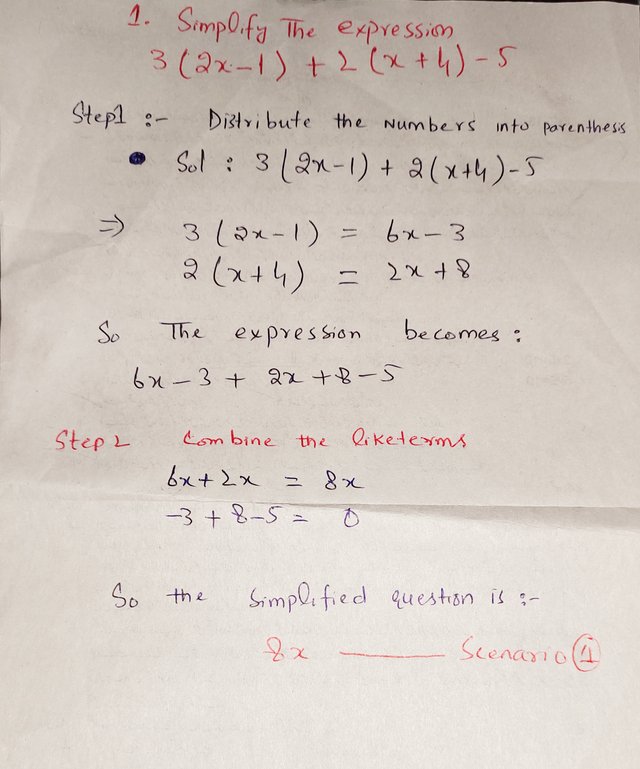 1. Simplify The expression
3(2x-1) + 2(x+4)-5
Step1 :- Distribute the Numbers into parenthesis
• Sol : 3(2x-1) + 2(x+4)-5
⇒ 3(2x-1) = 6x-3
2(x+4) = 2x+8
So The expression becomes:
6x-3 + 2x+8-5
Step 2 Combine the like terms
6x+2x = 8x
-3+8-5= 0
So the simplified question is :-
8x —— Scenario ①